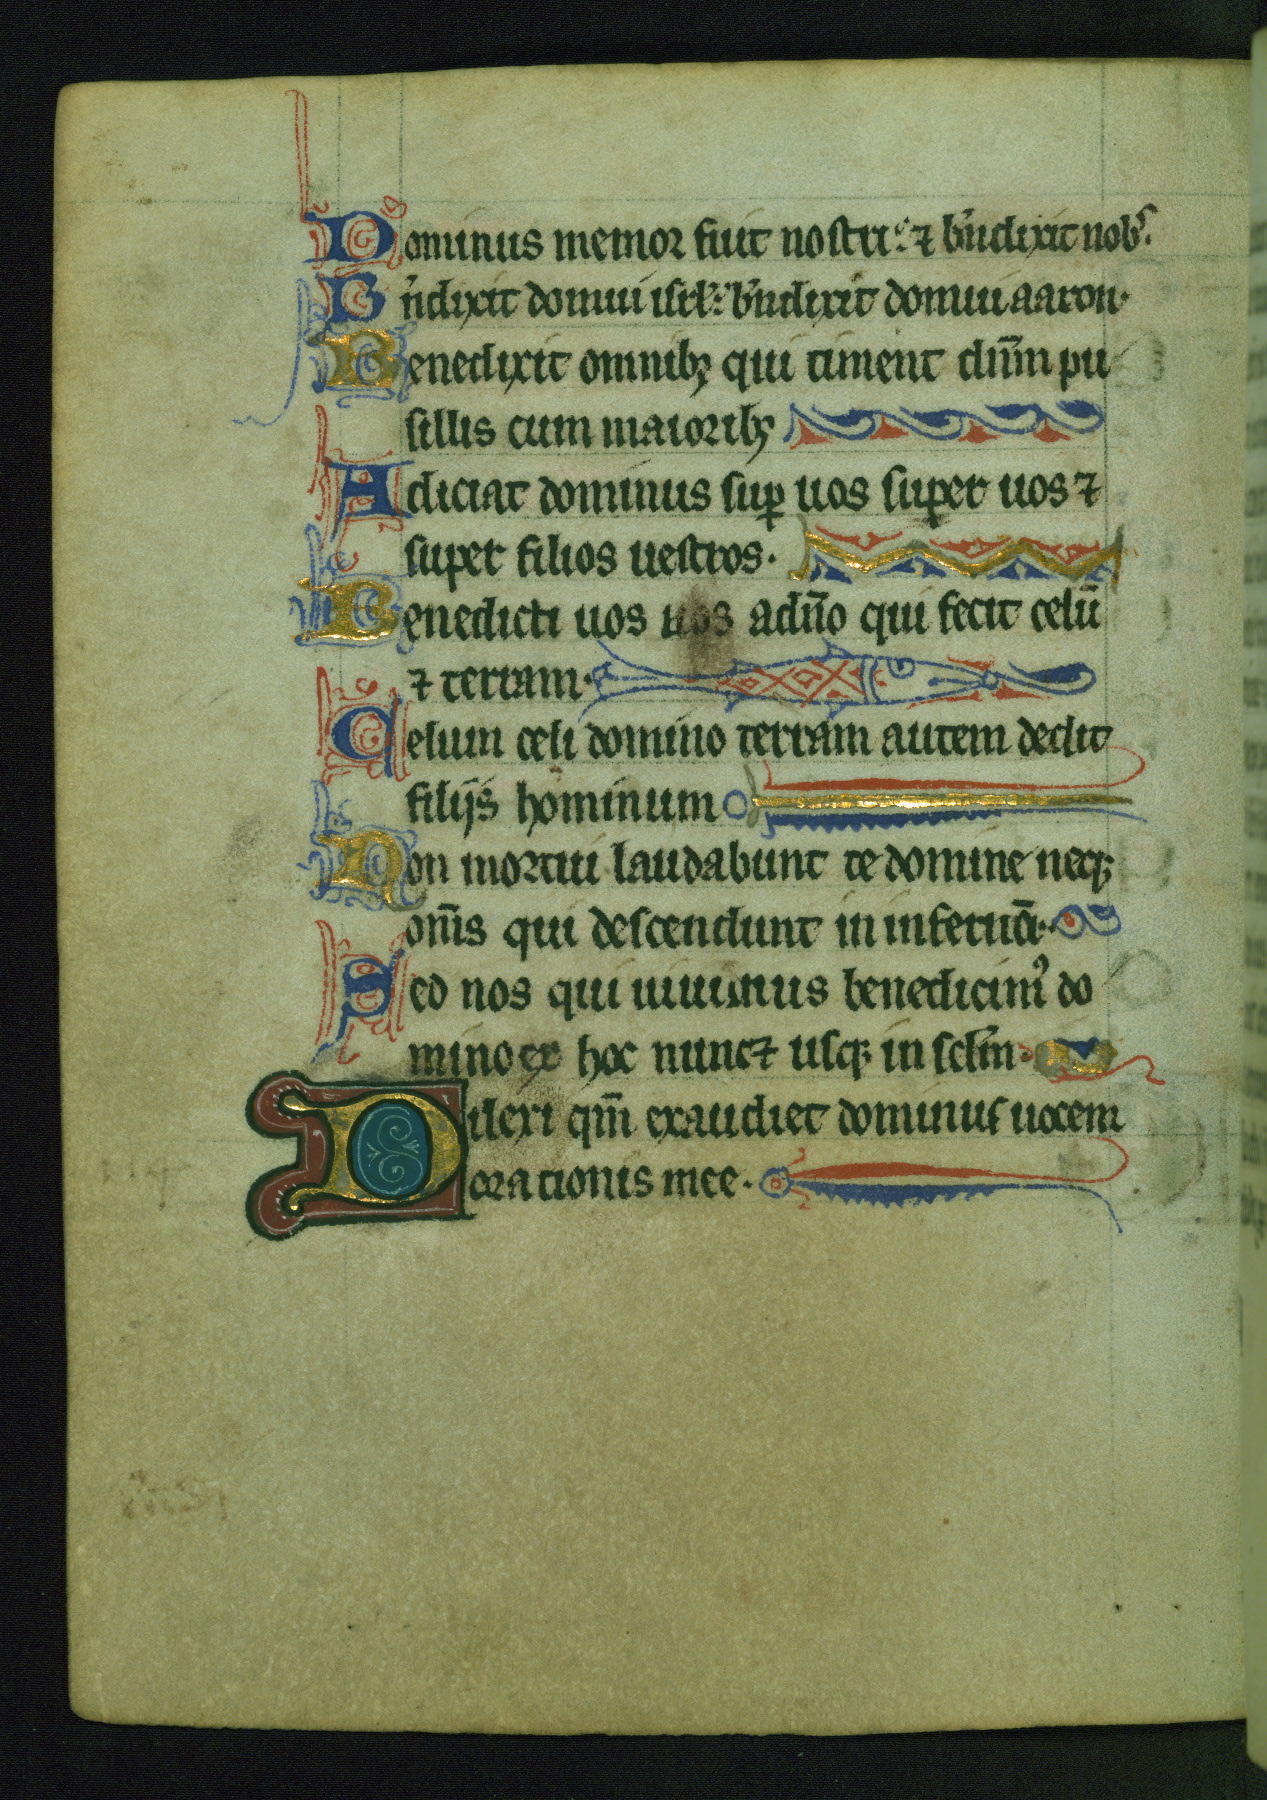 Dominus memor fuit nostri: ⁊ bn̄dixit nob᷒.
Bn̄dixit domui isrl̄: bn̄dixit domui aaron.
Benedixit omnibꝫ qui timent dn̄m pu
sillis cum maioribꝫ
Adiciat dominus suꝑ uos super uos ⁊
super filios uestros.
Benedicti uos uos adn̄o qui fecit celū
⁊ terram.
Celum celi domino terram autem dedit
filijs hominum
Non mortui laudabunt te domine neqꝫ
om̄s qui descendunt in infernū.
Sed nos qui uiuimus benedicimꝰ do
mino ex hoc nunc ⁊ usqꝫ in sclm̄.
Dilexi qm̄ exaudiet dominus uocem
orationis mee.